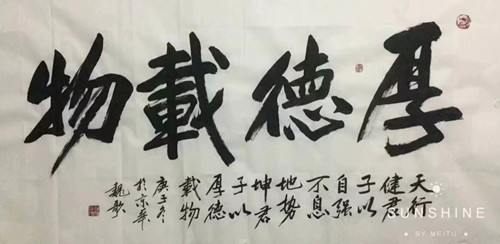 厚德載物
天行
健君
子以
自强
不息
地势
坤君
子以
厚德
載物
庚子冬
於京華
魏歌
SUNSHINE
BY MEITU